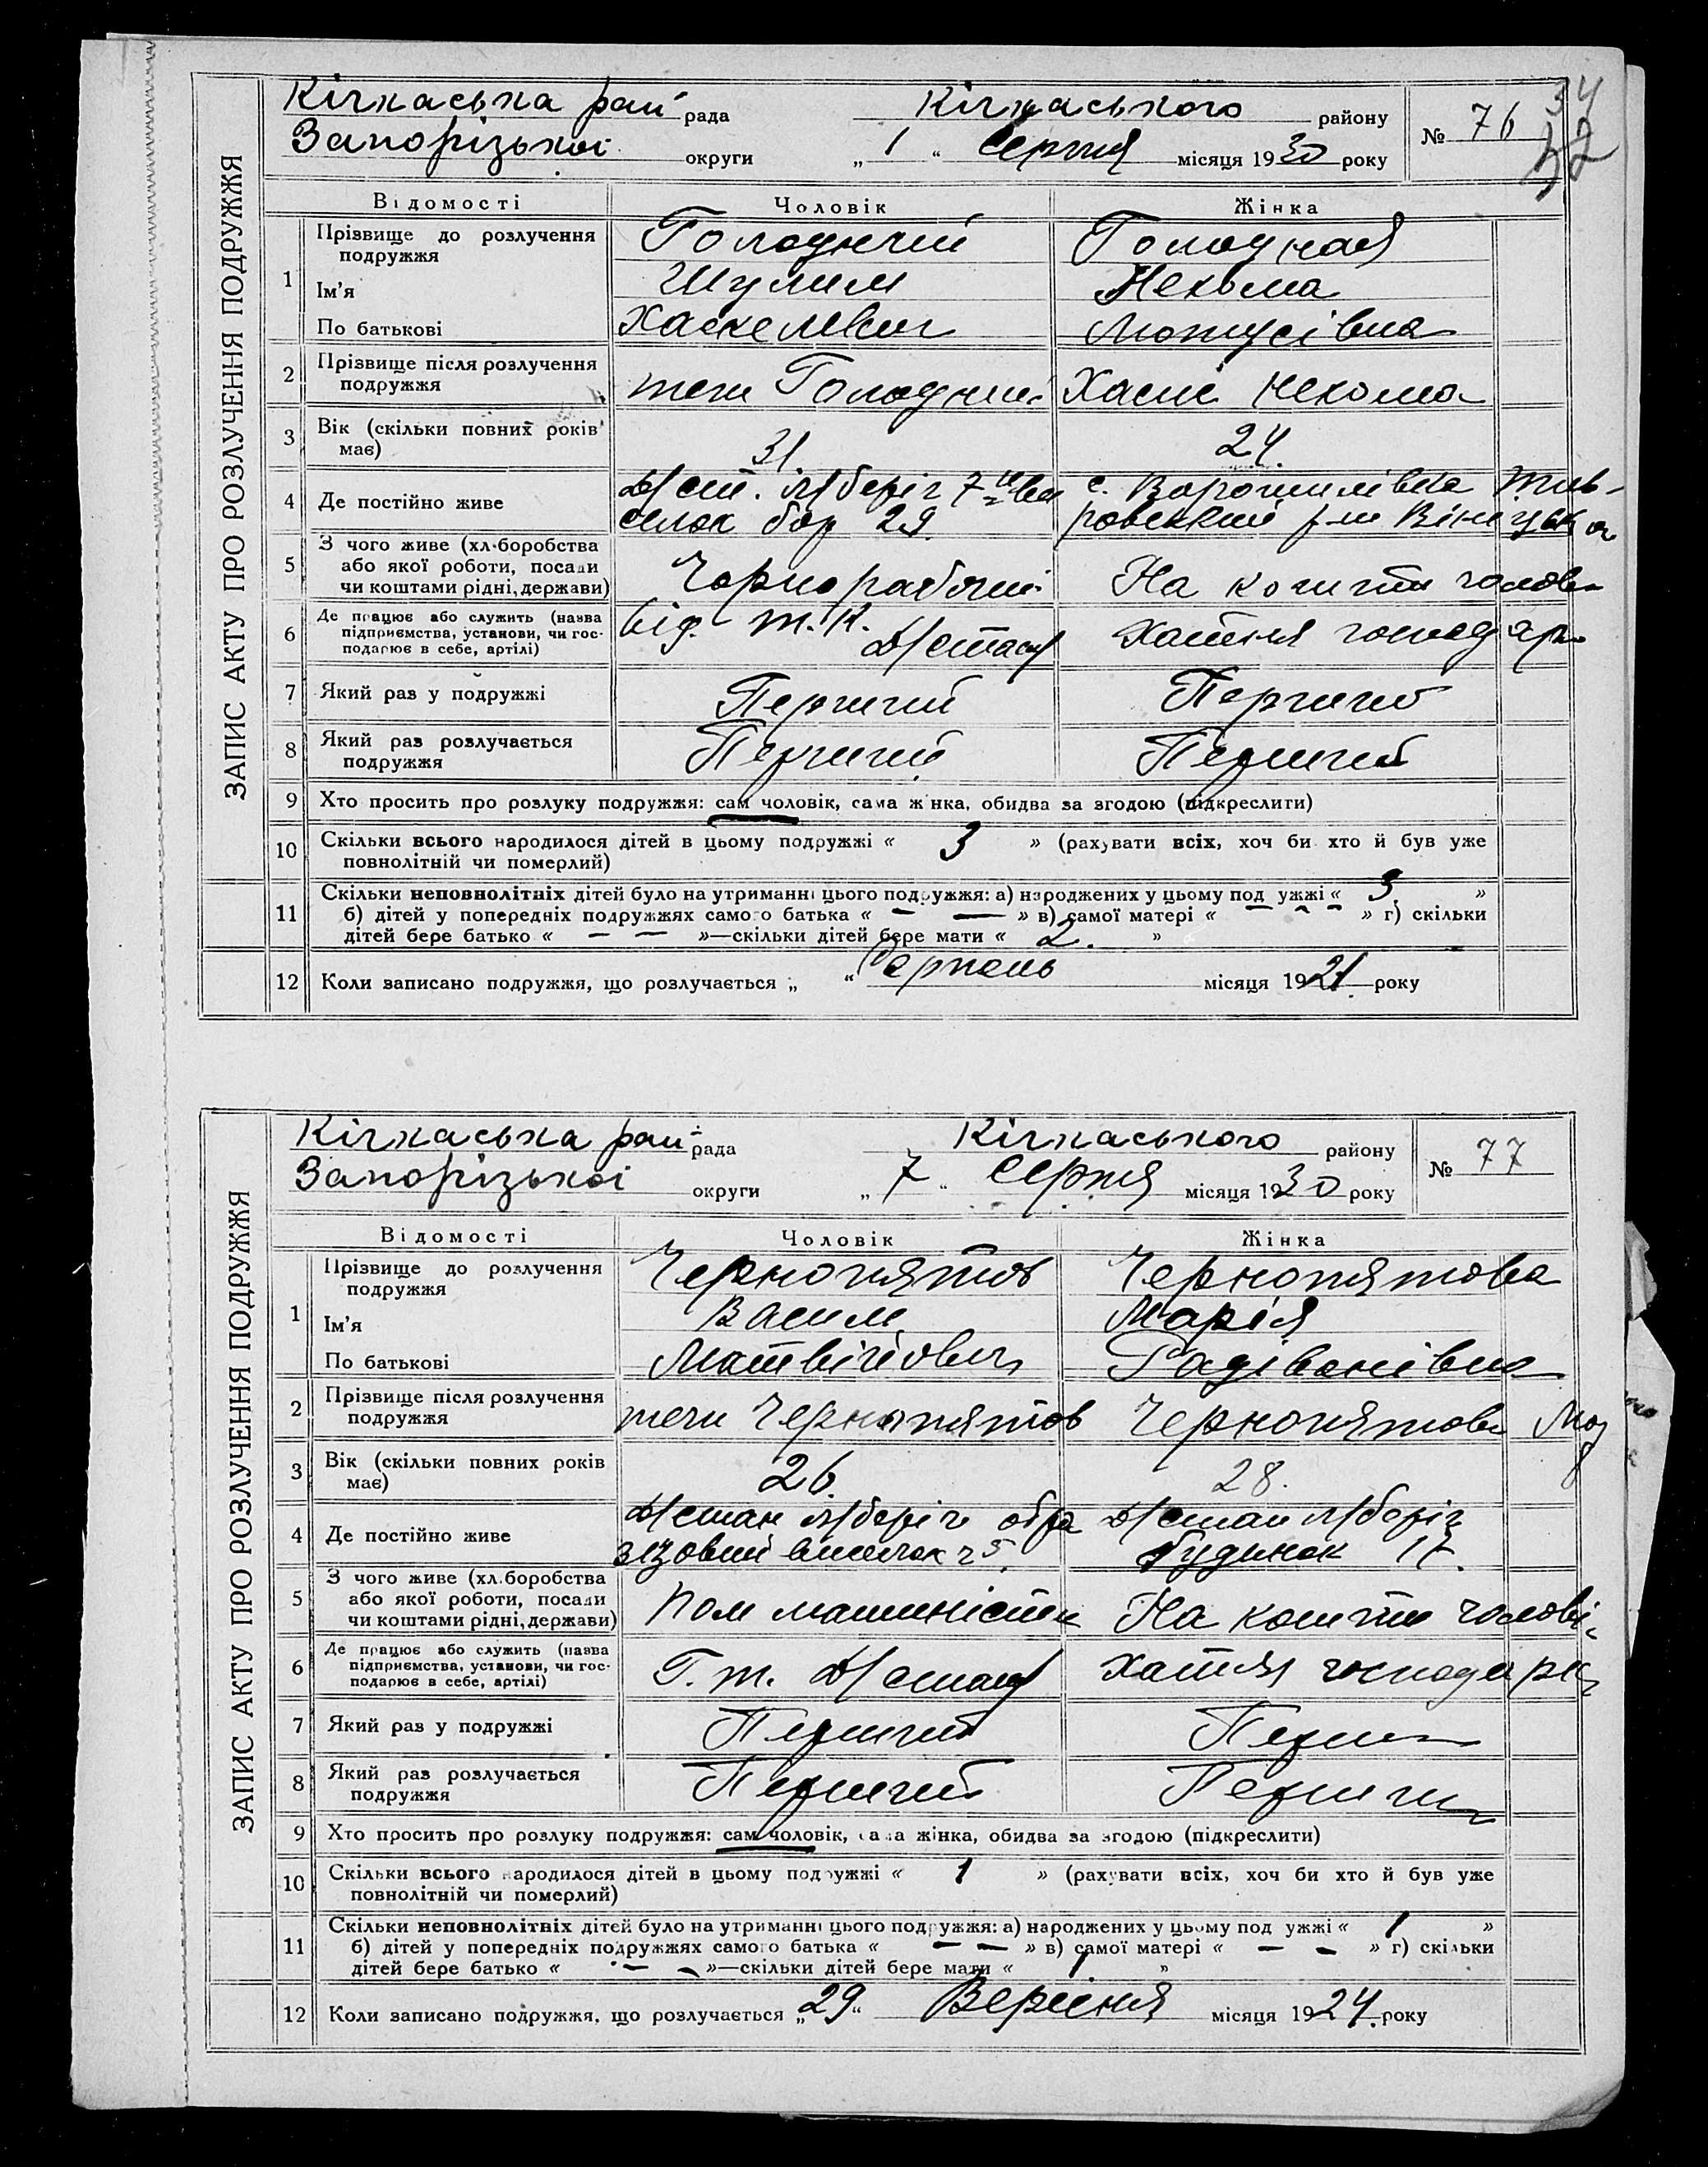 34
32
ЗАПИС АКТУ ПРО РОЗЛУЧЕННЯ ПОДРУЖЖЯ
Кічкаська рай рада Кічкаського району № 76
Запорізької округи „ 1 “ Серпня місяця 1930 року
Відомості Чоловік Жінка
1 Прізвище до розлучення подружжя Голодний Голодная
Ім'я Шулим Нехома
По батькові Хаскелевич Мотусівна
2 Прізвище після розлучення подружжя теж Голодний Нехома
3 Вік (скільки повних років має) 31 24.
4 Де постійно живе Д/ст. П/беріг 7 с. Ворошилівка Тив-
селок бар 29. ровський р-ну
5 З чого живе (хл.боробства або якої роботи, посади чи коштами рідні, держави) Чорноробочий На кошти
6 Де працює або служить (назва підприємства, установи, чи господарює в себе, артілі) від. т. К. Хатня господар
7 Який раз у подружжі Перший Перший
8 Який раз розлучається подружжя Перший Перший
9 Хто просить про розлуку подружжя: сам чоловік, сама жінка, обидва за згодою (підкреслити)
10 Скільки всього народилося дітей в цьому подружжі « 3 » (рахувати всіх, хоч би хто й був уже
повнолітній чи померлий)
11 Скільки неповнолітніх дітей було на утриманні цього подружжя: а) народжених у цьому подружжі « 3 »
б) дітей у попередніх подружжях самого батька « — — » в) самої матері « — — » г) скільки
дітей бере батько « — — »—скільки дітей бере мати « 2. »
12 Коли записано подружжя, що розлучається „ “ Серпень місяця 1921 року
ЗАПИС АКТУ ПРО РОЗЛУЧЕННЯ ПОДРУЖЖЯ
Кічкаська рай рада Кічкаського району № 77
Запорізької округи „ 7 “ Серпня місяця 1930 року
Відомості Чоловік Жінка
1 Прізвище до розлучення подружжя Чернопятов Чернопятова
Ім'я Василь Марія
По батькові Матвійович Радівонівна
2 Прізвище після розлучення подружжя теж Чернопятов Чернопятова
3 Вік (скільки повних років має) 26. 28.
4 Де постійно живе П/беріг обра П/беріг
зцовий виселок 25. будинок 17.
5 З чого живе (хл.боробства або якої роботи, посади чи коштами рідні, держави) Пом машиніста На кошти чолові
6 Де працює або служить (назва підприємства, установи, чи господарює в себе, артілі) Г. т. Хатня господарк
7 Який раз у подружжі Перший Перший
8 Який раз розлучається подружжя Перший Перший
9 Хто просить про розлуку подружжя: сам чоловік, сама жінка, обидва за згодою (підкреслити)
10 Скільки всього народилося дітей в цьому подружжі « 1 » (рахувати всіх, хоч би хто й був уже
повнолітній чи померлий)
11 Скільки неповнолітніх дітей було на утриманні цього подружжя: а) народжених у цьому подружжі « 1 »
б) дітей у попередніх подружжях самого батька « — — » в) самої матері « — — » г) скільки
дітей бере батько « — — »—скільки дітей бере мати « 1 »
12 Коли записано подружжя, що розлучається „ 29 “ Вересня місяця 1924. року